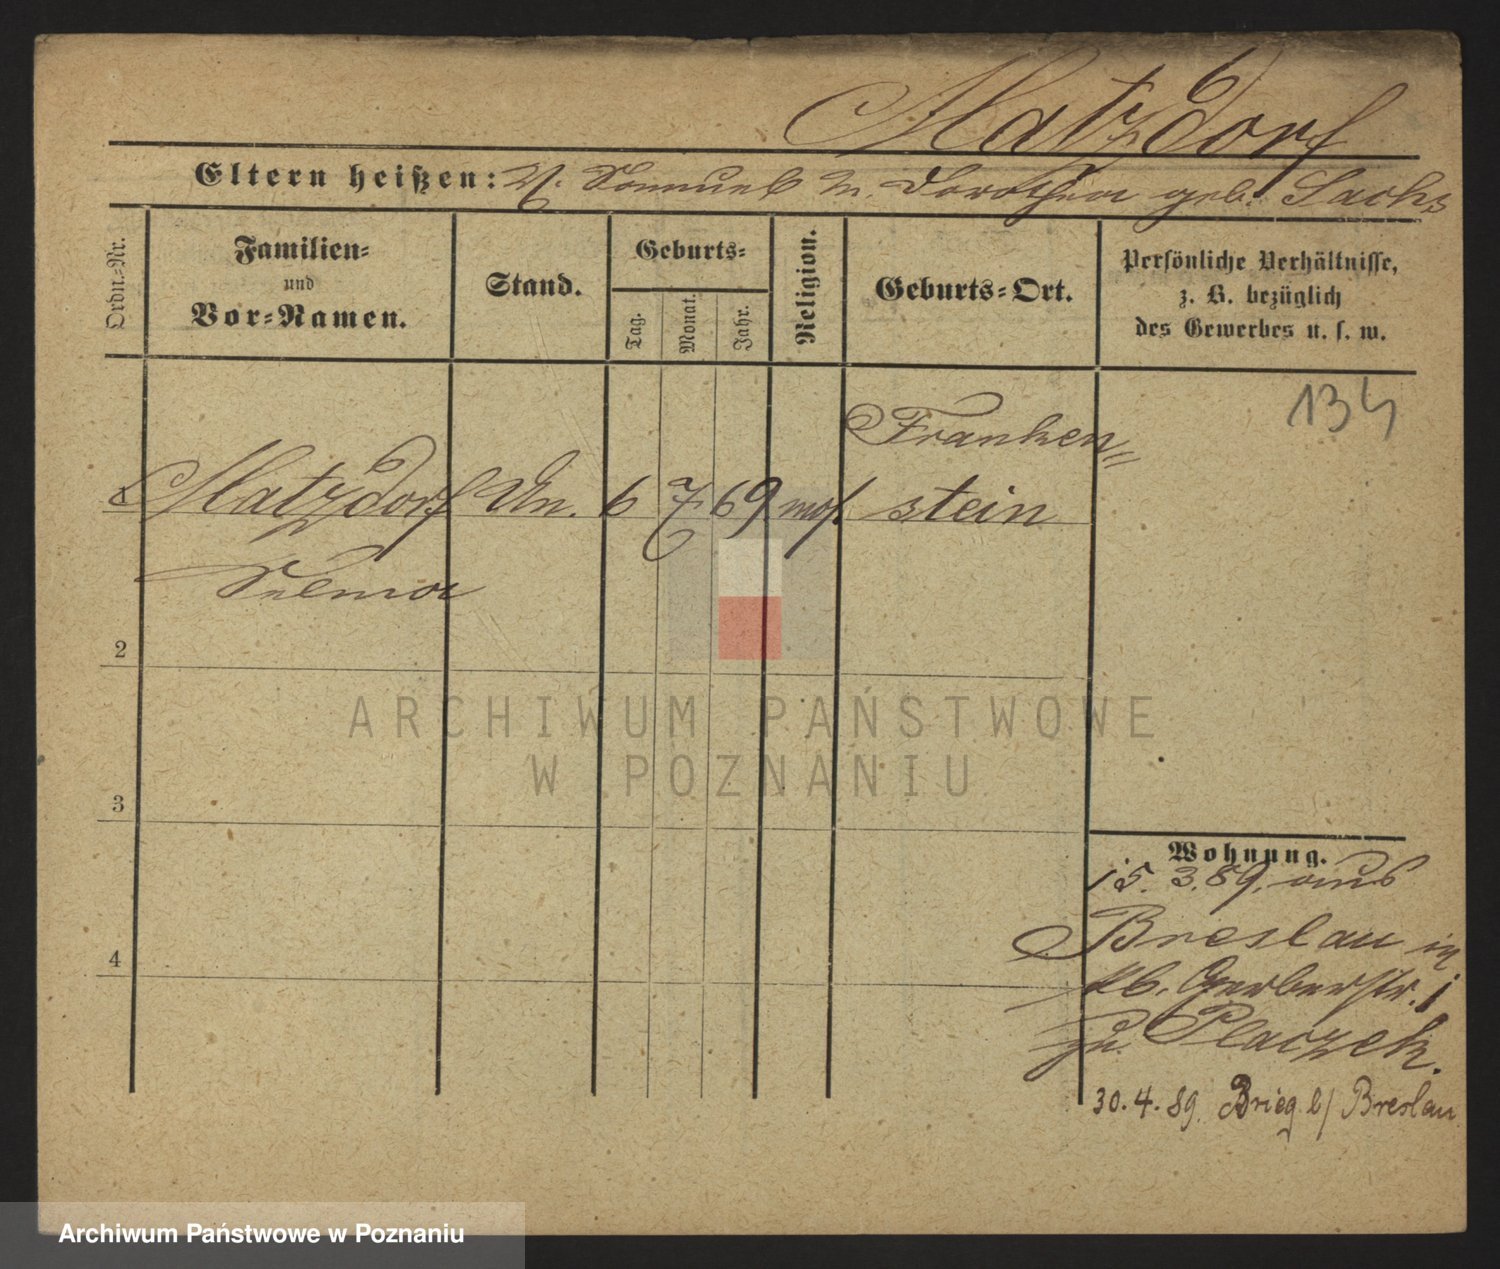 Matzdorf
Eltern heißen: V. Samuel M. Dorothea geb. Sachs
Ordn.-Nr.
Familien-
und
Vor-Namen.
Stand.
Geburts-
Tag.
Monat.
Jahr.
Religion.
Geburts-Ort.
Persönliche Verhältnisse,
z. B. bezüglich
des Gewerbes u. s. w.
134
Franken=
1 Matzdorf Un. 6 7 69 mos. stein
Selma
2
3
4
ARCHIWUM PAŃSTWOWE
W POZNANIU
Wohnung.
15. 3. 89. aus
Breslau in
Gerberstr. 1
Placzek.
30. 4. 89. Brieg b/ Breslau
Archiwum Państwowe w Poznaniu